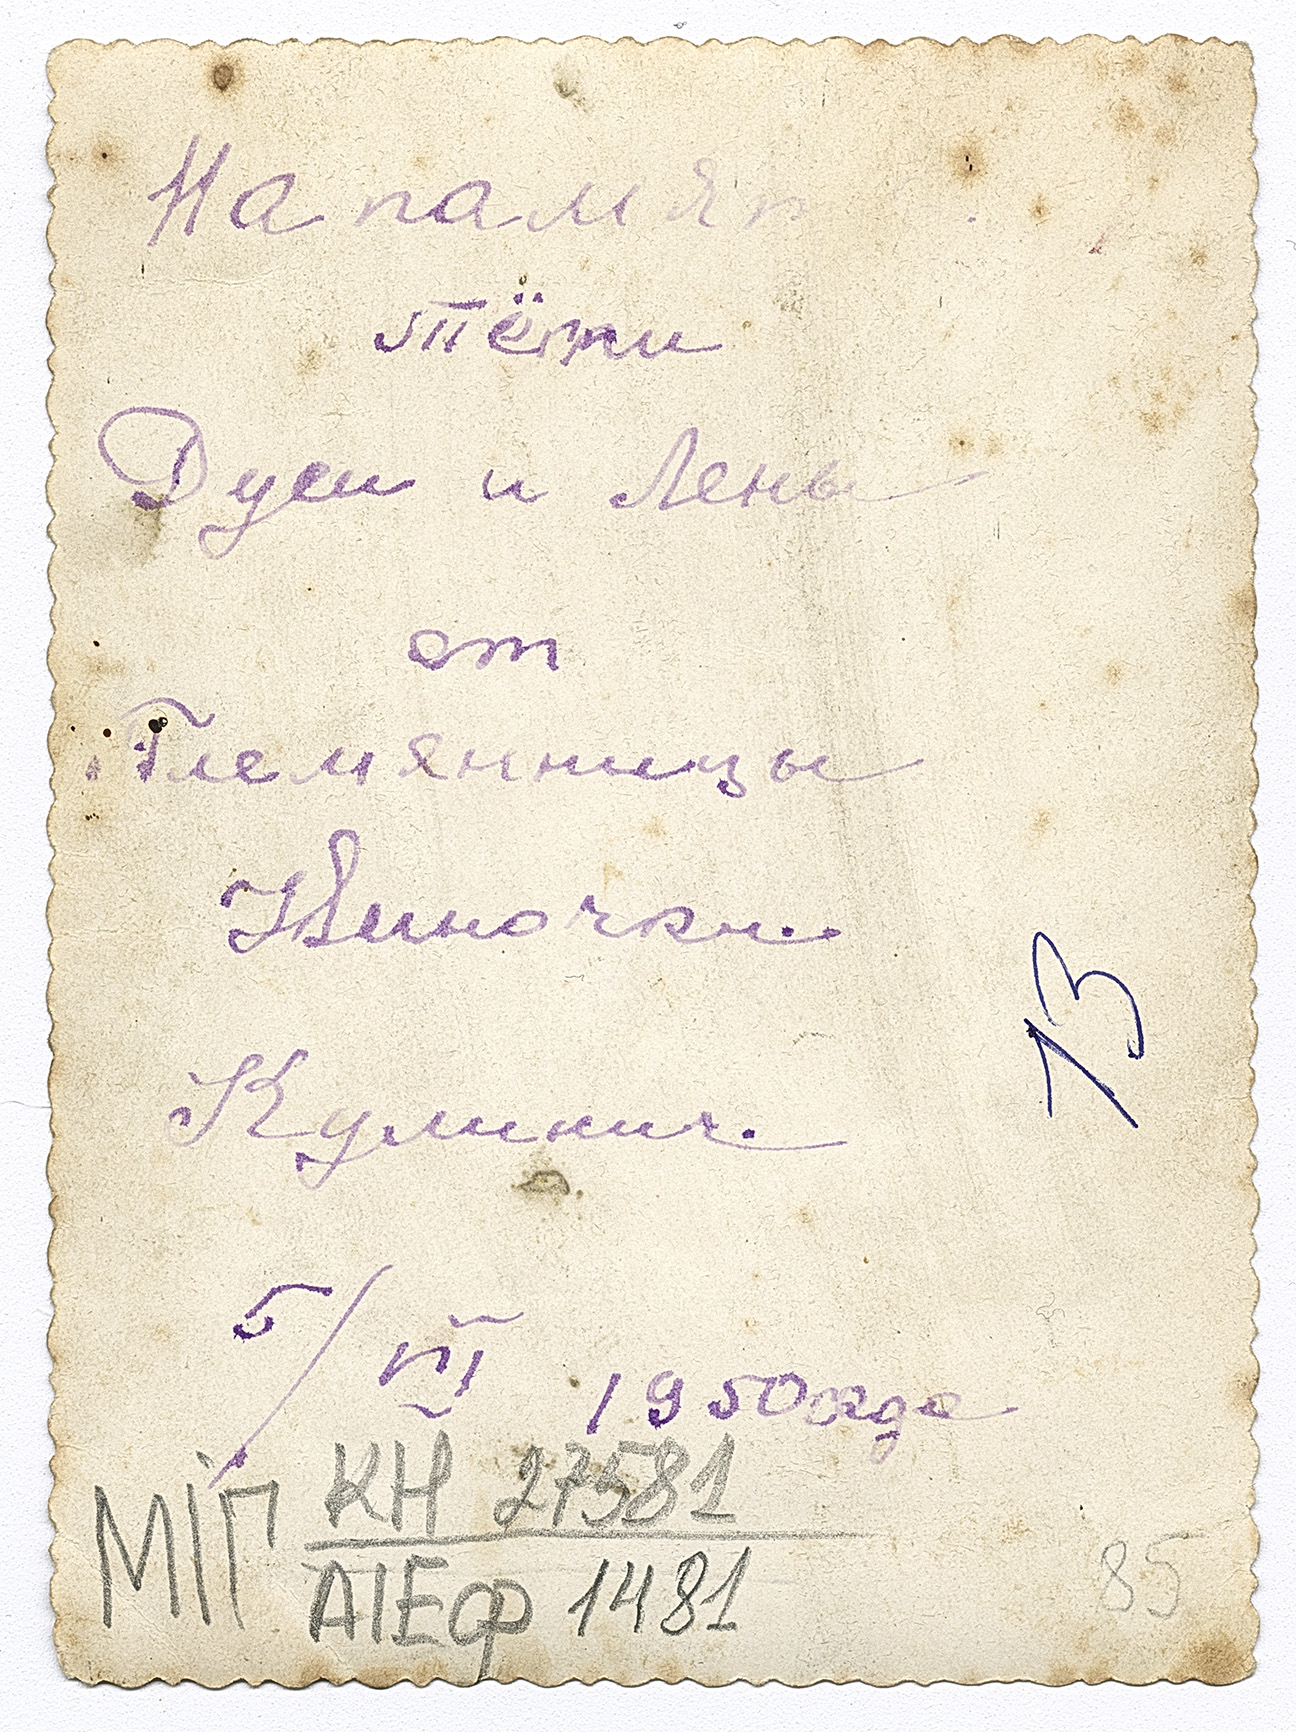 На памят
тётки
Дуси и Лены
от
Племянницы
Ниночки.
Кулинич.
5/VI 1950 года
МІП КН 27581
АІЕФ 1481
13
85